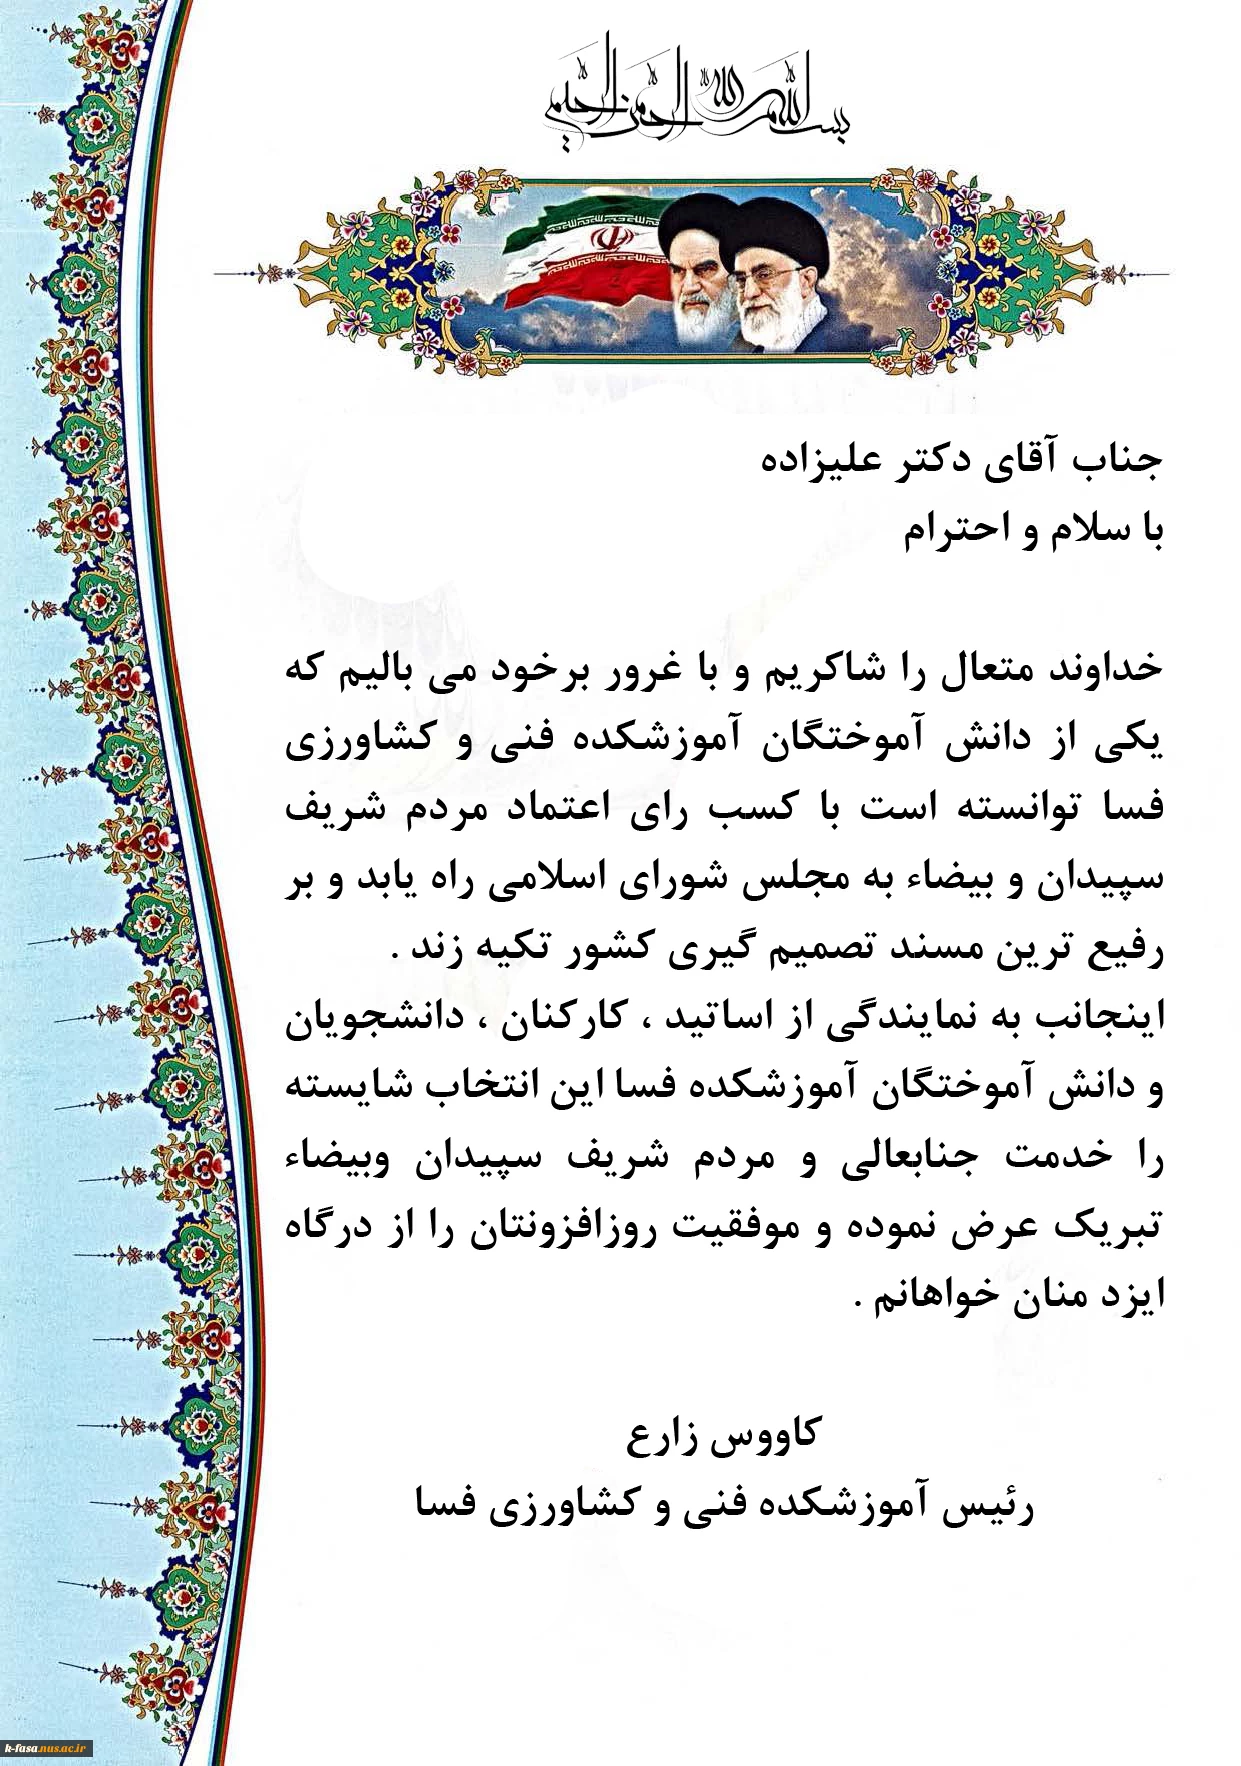 بسم الله الرحمن الرحیم
جناب آقای دکتر علیزاده
با سلام و احترام
خداوند متعال را شاکریم و با غرور برخود می بالیم که
یکی از دانش آموختگان آموزشکده فنی و کشاورزی
فسا توانسته است با کسب رای اعتماد مردم شریف
سپیدان و بیضاء به مجلس شورای اسلامی راه یابد و بر
رفیع ترین مسند تصمیم گیری کشور تکیه زند .
اینجانب به نمایندگی از اساتید ، کارکنان ، دانشجویان
و دانش آموختگان آموزشکده فسا این انتخاب شایسته
را خدمت جنابعالی و مردم شریف سپیدان وبیضاء
تبریک عرض نموده و موفقیت روزافزونتان را از درگاه
ایزد منان خواهانم .
کاووس زارع
رئیس آموزشکده فنی و کشاورزی فسا
k-fasa.nus.ac.ir